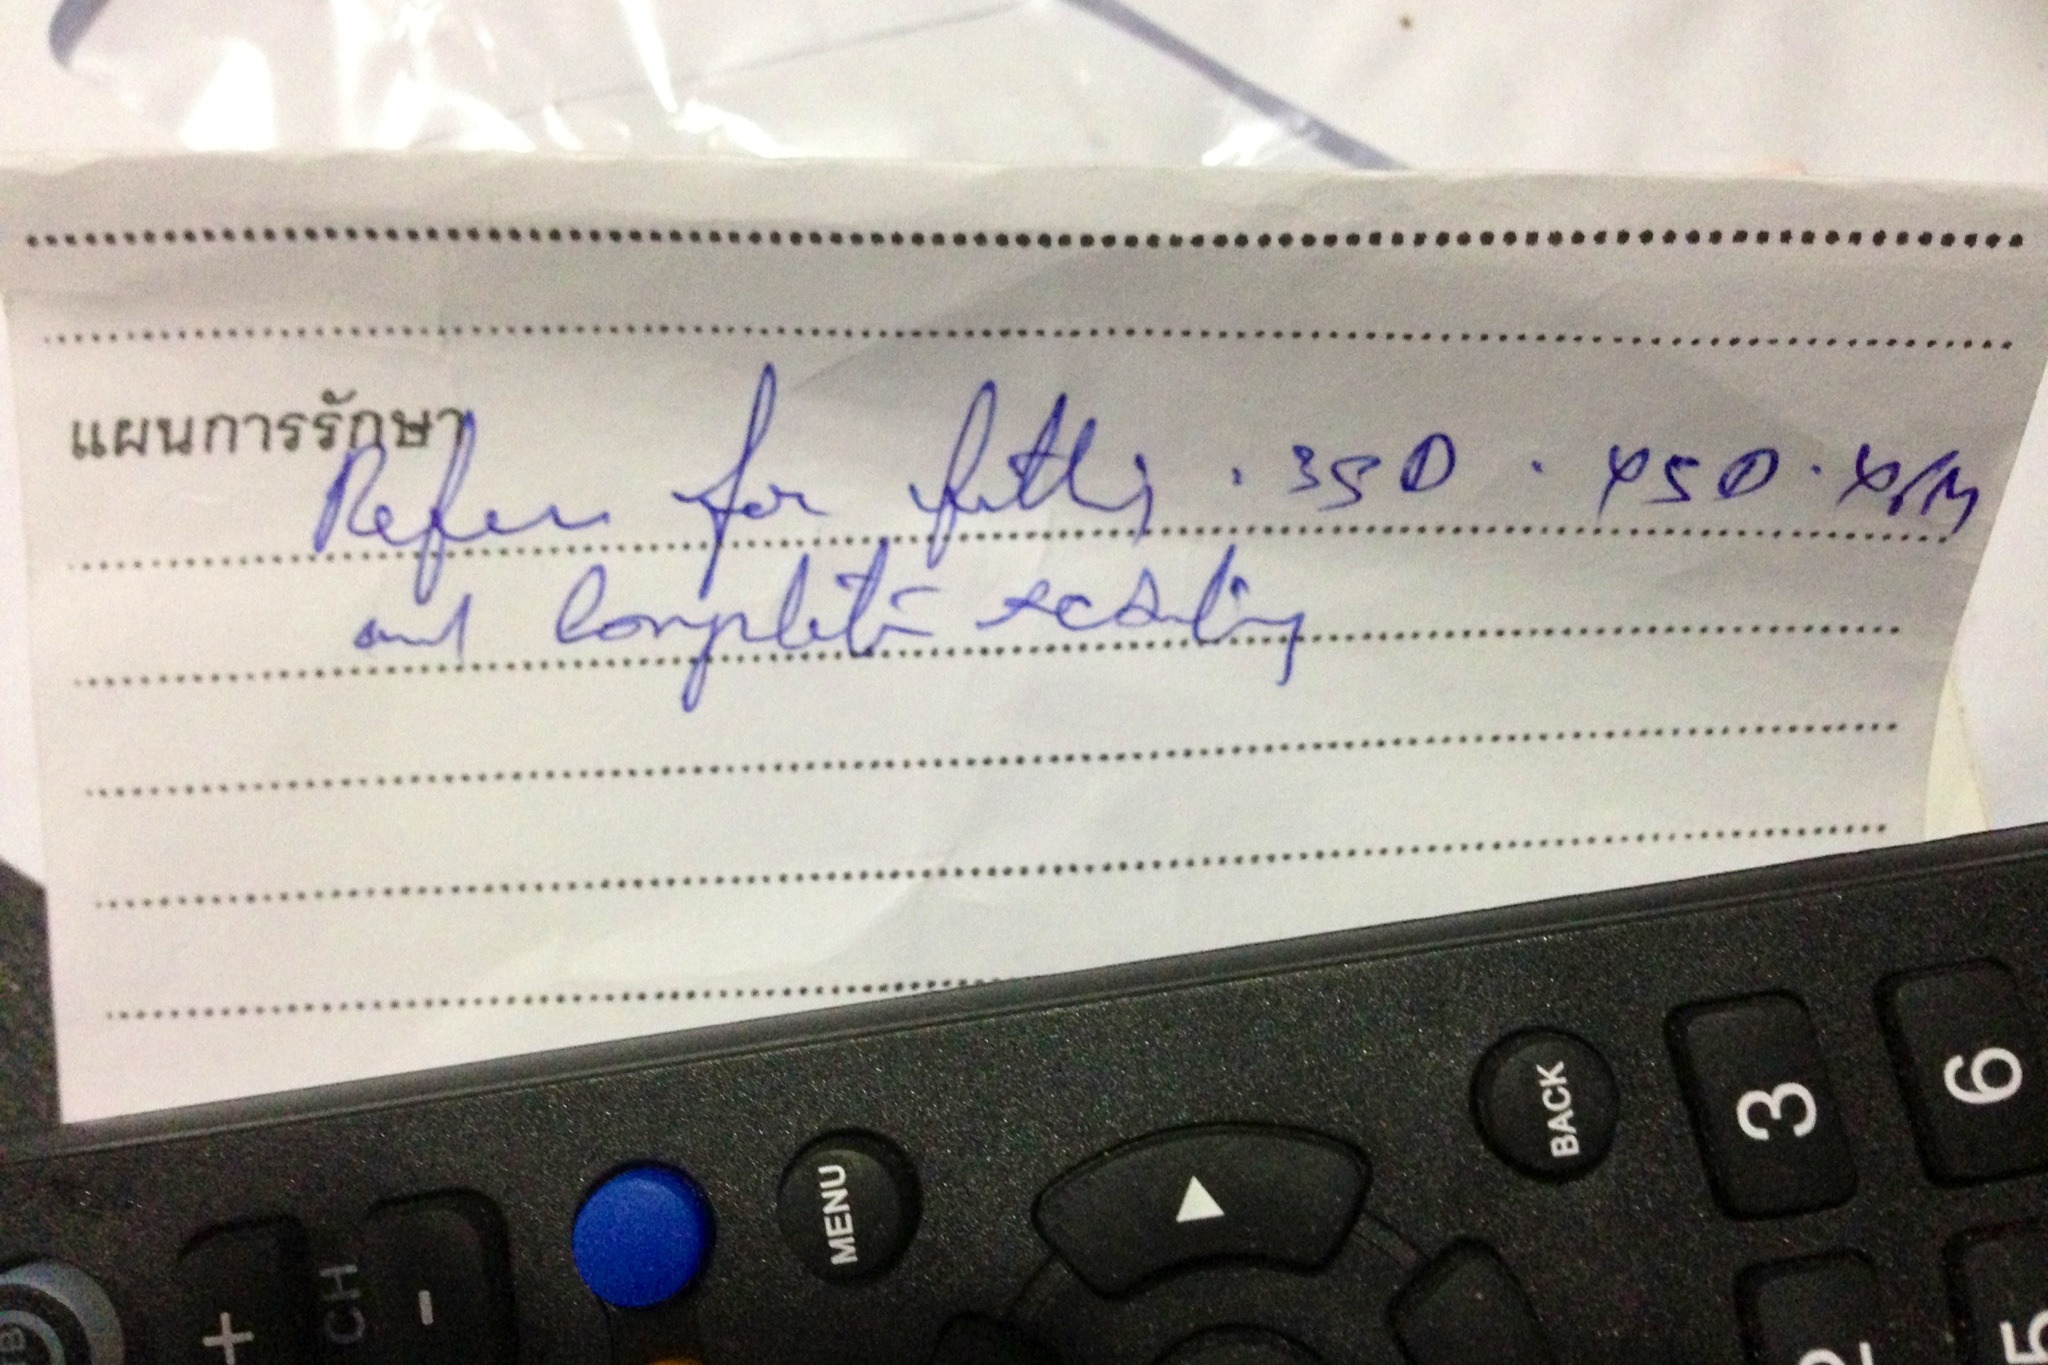 แผนการรักษา
Refer for . 35D . 45D .
and complete scaling
MENU
BACK
3
6
+
CH
-
2
5